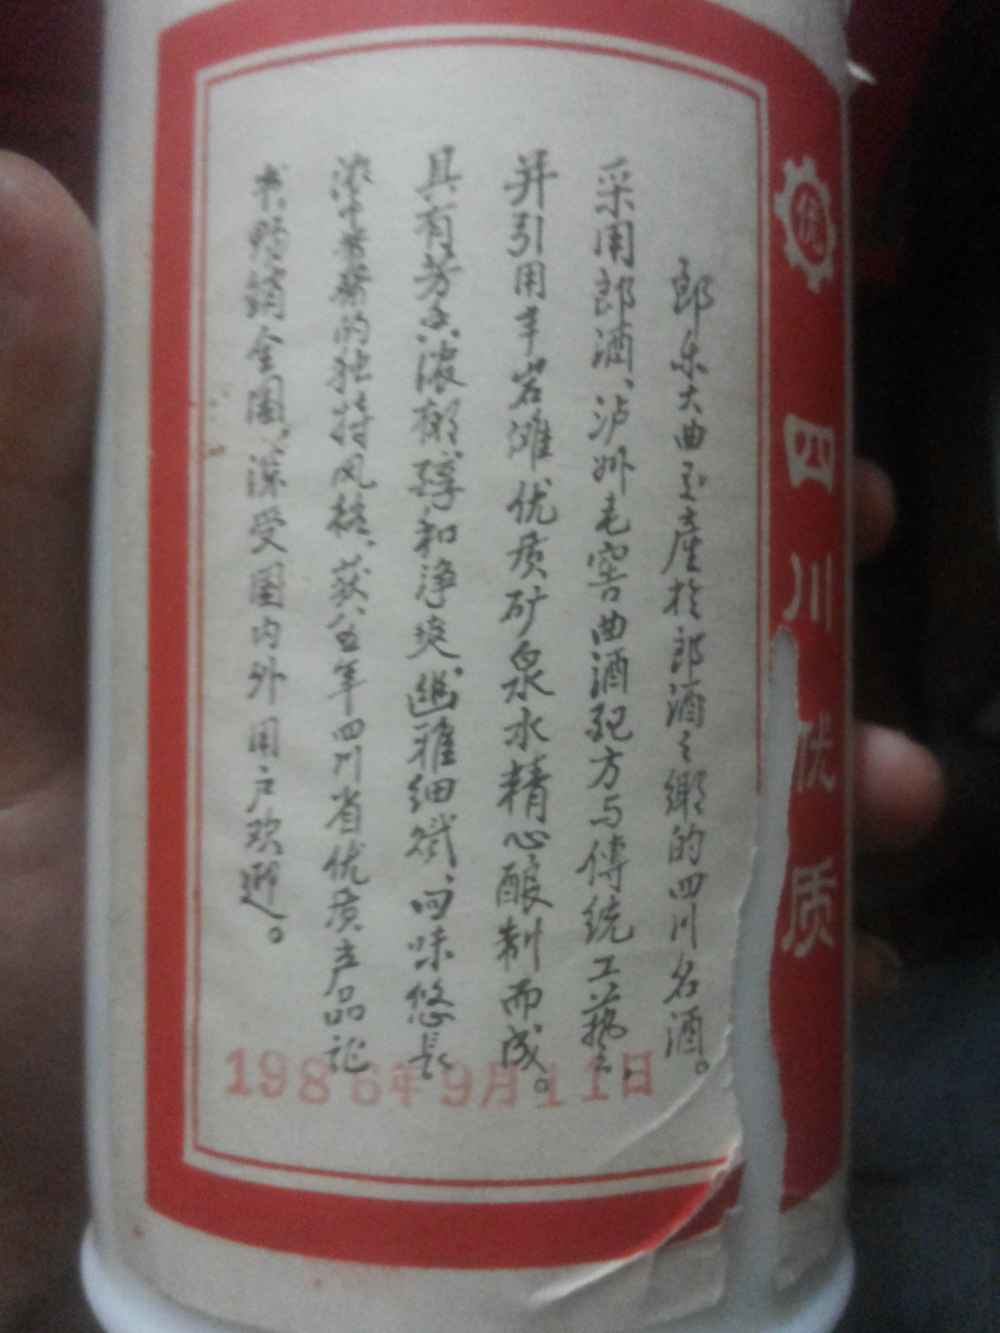 优
四川优质
郎乐大曲主產於郎酒之鄉的四川名酒。
采用郎酒、泸州老窖曲酒配方与傳統工藝,
并引用羊岩滩优质矿泉水精心酿制而成。
具有芳香浓郁,醇和净爽,幽雅细腻,回味悠长
的独特风格、获八五年四川省优质产品证
书,畅销全国,深受国内外用户欢迎。
1986年9月11日